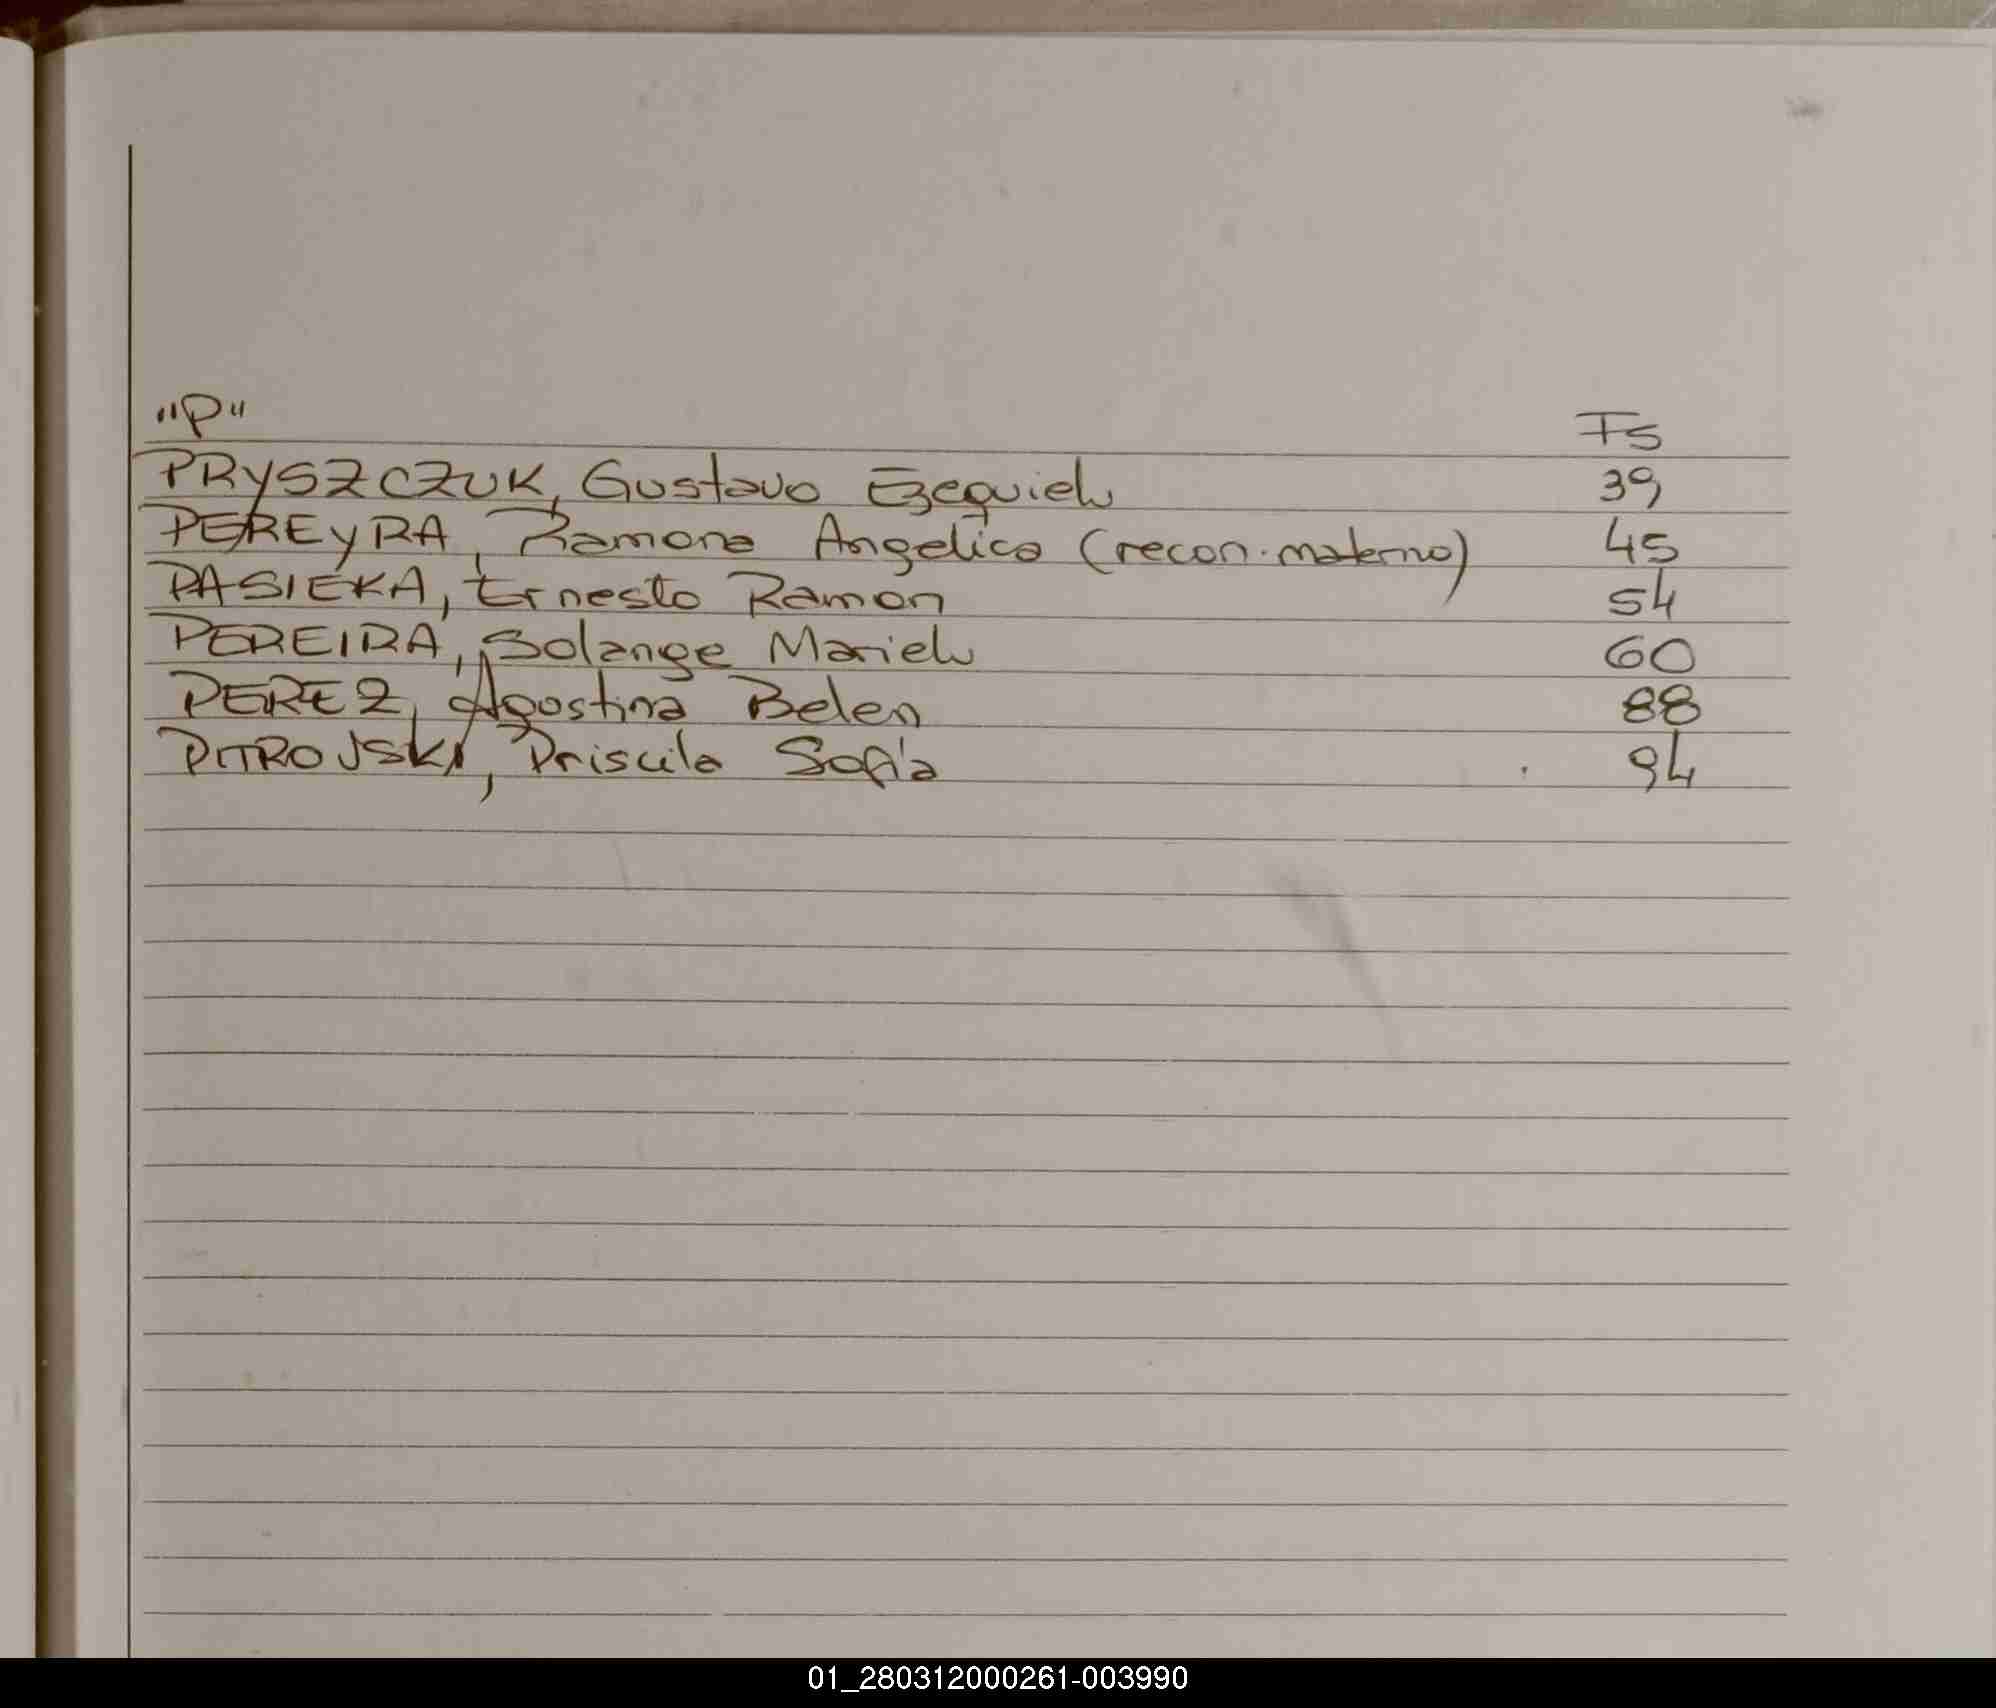 "P" Fs
PRYSZCZUK, Gustavo Ezequiel 39
PEREYRA, Ramona Angelica (recon. materno) 45
PASIEKA, Ernesto Ramon 54
PEREIRA, Solange Mariel 60
PEREZ, Agostina Belen 88
PITROVSKI, Priscila Sofía 94
01_280312000261-003990